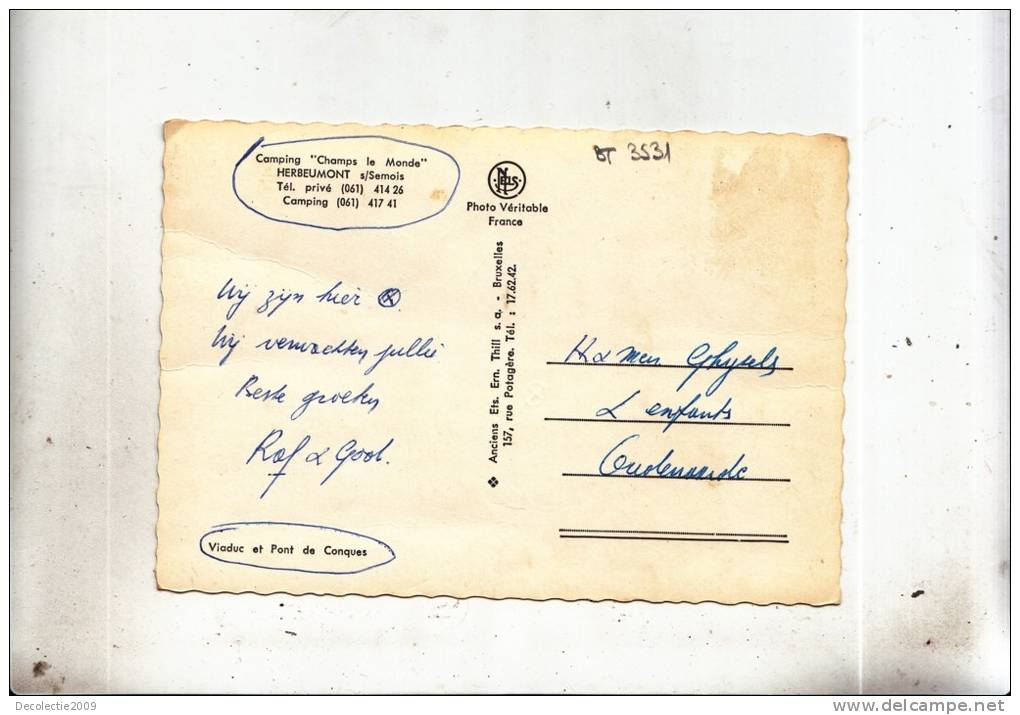 Camping "Champs le Monde"
HERBEUMONT s/Semois
Tél. privé (061) 414 26
Camping (061) 417 41
Wij zijn hier
Wij verwachten jullie
Beste groeten
Raf &
Viaduc et Pont de Conques
NELS
Photo Véritable
France
Anciens Ets. Ern. Thill s. a. - Bruxelles
157, rue Potagère. Tél. : 17.62.42.
BT 3531
Ghysels
& enfants
Oudenaarde
Decolectie2009
www.delcampe.net